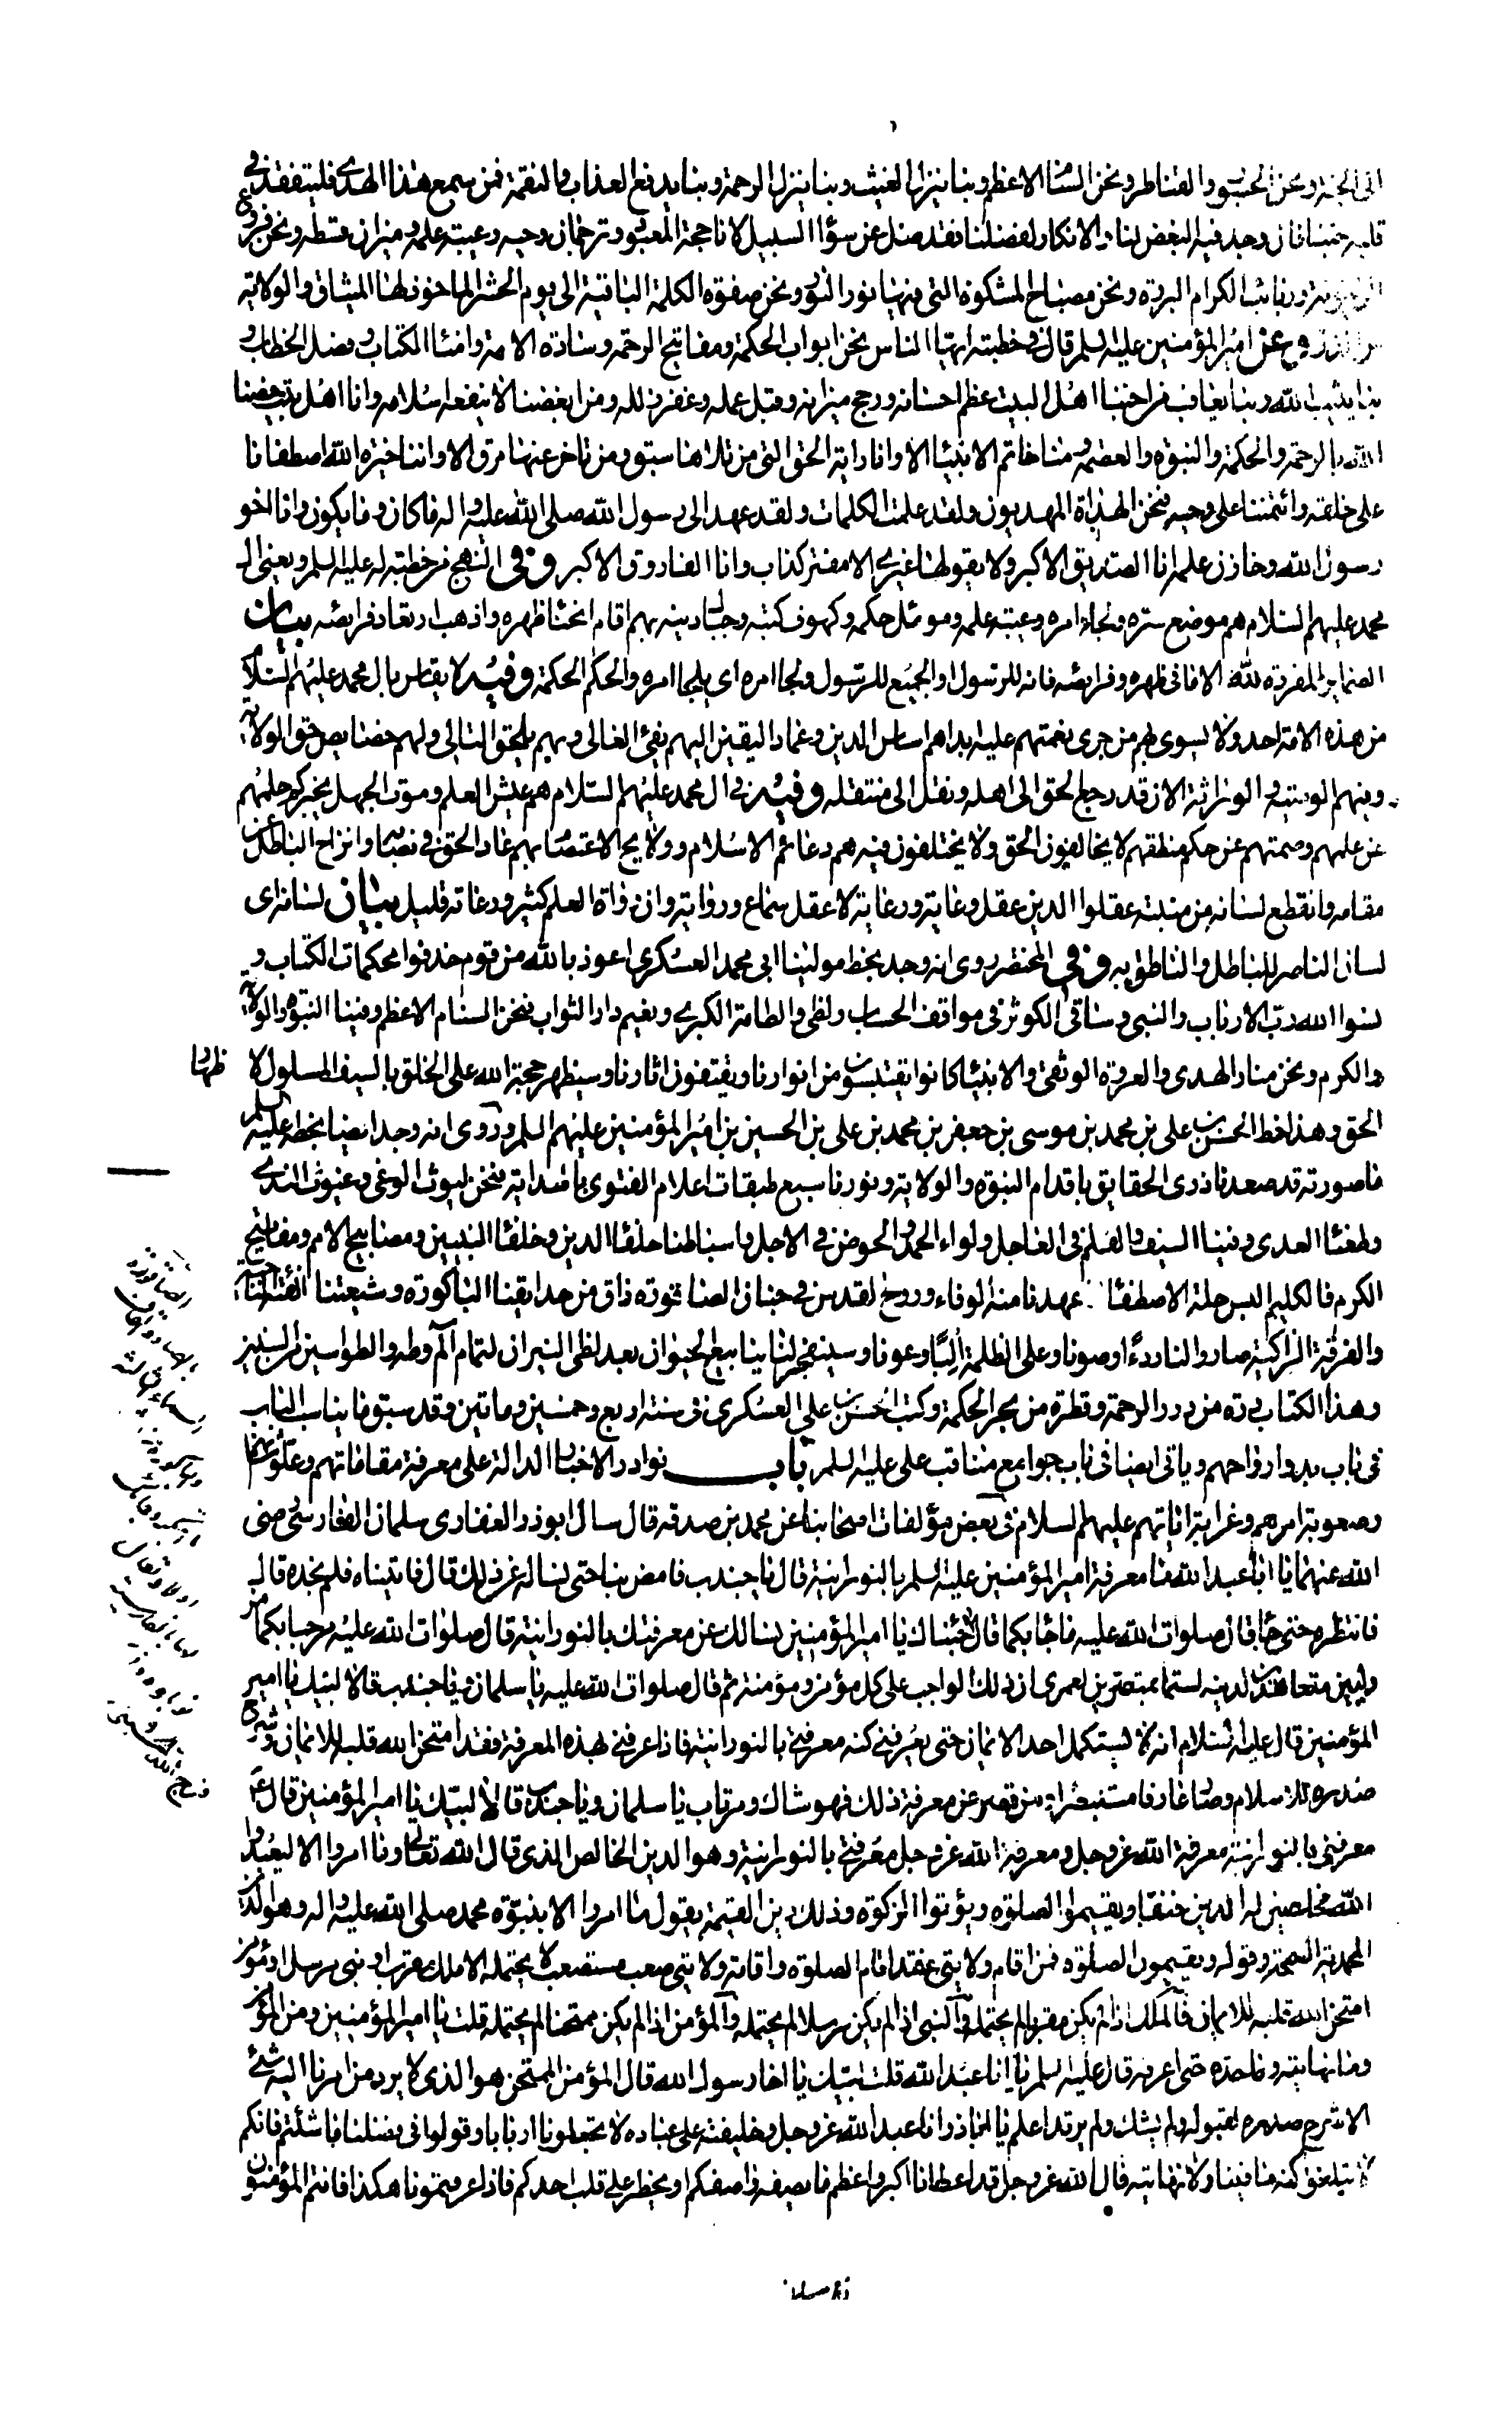 الى الجنة ونحن الجسور والقناطر ونحن السنا الاعظم وبنا ينزل الغيث وبنا ينزل الرحمة وبنا يدفع العذاب والنقمة فمن سمع هذا الهدى فليتفقد في
قلبه حبنا فان وجد فيه البغض لنا والانكار لفضلنا فقد ضل عن سواء السبيل لانا حجة المعبود وترجمان وحيه وعيبة علمه وميزان قسطه ونحن فروع
الزيتونة وربائب الكرام البررة ونحن مصباح المشكوة التي فيها نور النور ونحن صفوة الكلمة الباقية الى يوم الحشر الماخوذ لها الميثاق والولاية
من الذر وعن امير المؤمنين عليه السلم قال في خطبته ايها الناس نحن ابواب الحكمة ومفاتيح الرحمة وسادة الامة وامناء الكتاب وفصل الخطاب و
بنا يثيب الله وبنا يعاقب من احبنا اهل البيت عظم احسانه ورجح ميزانه وقبل عمله وغفر زلله ومن ابغضنا لا ينفعه اسلامه وانا اهل بيت خصنا
الله بالرحمة والحكمة والنبوة والعصمة ومنا خاتم الانبياء الا وانا راية الحق التي من تلاها سبق ومن تاخر عنها مرق الا واننا خيرة الله اصطفانا
على خلقه وائتمننا على وحيه فنحن الهداة المهديون ولقد علمت الكلمات ولقد عهد الى رسول الله صلى الله عليه واله ما كان وما يكون وانا اخو
رسول الله وخازن علمه انا الصديق الاكبر ولا يقولها غيري الا مفتر كذاب وانا الفاروق الاكبر وفي النهج من خطبة له عليه السلم ويعني ال
محمد عليهم السلام هم موضع سره ولجاء امره وعيبة علمه وموئل حكمه وكهوف كتبه وجبال دينه بهم اقام انحناء ظهره واذهب ارتعاد فرايصه بيان
الضماير المفردة لله الا ما في ظهره وفرايصه فانه للرسول او الجميع للرسول ولجا امره اي يلجا امره والحكم الحكمة وفيه لا يقاس بال محمد عليهم السلام
من هذه الامة احد ولا يسوى بهم من جرت نعمتهم عليه ابدا هم اساس الدين وعماد اليقين اليهم يفئ الغالي وبهم يلحق التالي ولهم خصايص حق الولاية
وفيهم الوصية والوراثة الان قد رجع الحق الى اهله ونقل الى منتقله وفيه في ال محمد عليهم السلام هم عيش العلم وموت الجهل يخبركم حلمهم
عن علمهم وصمتهم عن حكم منطقهم لا يخالفون الحق ولا يختلفون فيه هم دعائم الاسلام وولائج الاعتصام بهم عاد الحق في نصابه وانزاح الباطل عن
مقامه وانقطع لسانه من منبته عقلوا الدين عقل وعاية ورعاية لا عقل سماع ورواية وان رواة العلم كثير ورعاته قليل بيان لسانه اي
لسان الناصر للباطل والناطق به وفي المختصر روى انه وجد بخط مولينا ابي محمد العسكري اعوذ بالله من قوم حذفوا محكمات الكتاب و
نسوا الله رب الارباب والنبي وساقي الكوثر في مواقف الحساب ولظى والطامة الكبرى ونعيم دار الثواب فنحن السنام الاعظم وفينا النبوة والولاية
والكرم ونحن منار الهدى والعروة الوثقى والانبياء كانوا يقتبسون من انوارنا ويقتفون اثارنا وسيظهر حجة الله على الخلق بالسيف المسلول لا ظهار
الحق وهذا خط الحسن بن علي بن محمد بن موسى بن جعفر بن محمد بن علي بن الحسين بن امير المؤمنين عليهم السلم وروى انه وجد ايضا بخطه عليه السلم
ما صورته قد صعدنا ذرى الحقايق باقدام النبوة والولاية ونورنا سبع طبقات اعلام الفتوى بالهداية فنحن ليوث الوغى وغيوث الندى
وطعناء العدى وفينا السيف والقلم في العاجل ولواء الحمد والحوض في الاجل واسباطنا حلفاء الدين وخلفاء النبيين ومصابيح الامم ومفاتيح
الكرم فالكليم البس حلة الاصطفاء لما عهدنا منه الوفاء وروح القدس في جنان الصاغورة ذاق من حدايقنا الباكورة وشيعتنا الفئة الناجية
والفرقة الزاكية صاروا لنا ردءا وصونا وعلى الظلمة البا وعونا وسينفجر لنا ينابيع الحيوان بعد لظى النيران لتمام الم وطه والطواسين من السنين
وهذا الكتاب درة من درر الرحمة وقطرة من بحر الحكمة وكتب الحسن بن علي العسكري في سنة اربع وخمسين ومأتين وقد سبق ما يناسب الباب
في باب بدو ارواحهم وياتي ايضا في باب جوامع مناقب علي عليه السلم باب نوادر الاخبار الدالة على معرفة مقاماتهم وعلو شانهم
وصعوبة امرهم وغرابة اياتهم عليهم السلام في بعض مؤلفات اصحابنا عن محمد بن صدقه قال سال ابوذر الغفاري سلمان الفارسي رضي
الله عنهما يا ابا عبد الله ما معرفة امير المؤمنين عليه السلم بالنورانية قال يا جندب فامض بنا حتى نساله عن ذلك قال فاتيناه فلم نجده قال
فانتظرنه حتى جاء قال صلوات الله عليه ما جاء بكما قالا جئناك يا امير المؤمنين نسالك عن معرفتك بالنورانية قال صلوات الله عليه مرحبا بكما من
وليين متعاهدين لدينه لستما بمقصرين لعمري ان ذلك لواجب على كل مؤمن ومؤمنة ثم قال صلوات الله عليه يا سلمان ويا جندب قالا لبيك يا امير
المؤمنين قال عليه السلام انه لا يستكمل احد الايمان حتى يعرفني كنه معرفتي بالنورانية فاذا عرفني بهذه المعرفة فقد امتحن الله قلبه للايمان وشرح
صدره للاسلام وصار عارفا مستبصرا ومن قصر عن معرفة ذلك فهو شاك ومرتاب يا سلمان ويا جندب قالا لبيك يا امير المؤمنين قال ع
معرفتي بالنورانية معرفة الله عز وجل ومعرفة الله عز وجل معرفتي بالنورانية وهو الدين الخالص الذي قال الله تعالى وما امروا الا ليعبدوا
الله مخلصين له الدين حنفاء ويقيموا الصلوة ويؤتوا الزكوة وذلك دين القيمة يقول ما امروا الا بنبوة محمد صلى الله عليه واله وهو الدين
المحمدية السمحة وقوله ويقيمون الصلوة فمن اقام ولايتي فقد اقام الصلوة واقامة ولايتي صعب مستصعب لا يحتمله الا ملك مقرب او نبي مرسل او مؤمن
امتحن الله قلبه للايمان فالملك اذا لم يكن مقربا لم يحتمله والنبي اذا لم يكن مرسلا لم يحتمله والمؤمن اذا لم يكن ممتحنا لم يحتمله قلت يا امير المؤمنين من المؤمن
وما نهايته وما حده حتى اعرفه قال عليه السلم يا ابا عبد الله قلت لبيك يا اخا رسول الله قال المؤمن الممتحن هو الذي لا يرد من امرنا اليه شئ
الا شرح صدره لقبوله ولم يشك ولم يرتد اعلم يا اباذر انا عبد الله عز وجل وخليفته على عباده لا تجعلونا اربابا وقولوا في فضلنا ما شئتم فانكم
لا تبلغون كنه ما فينا ولا نهايته فان الله عز وجل قد اعطانا اكبر واعظم مما يصفه واصفكم او يخطر على قلب احدكم فاذا عرفتمونا هكذا فانتم المؤمنون